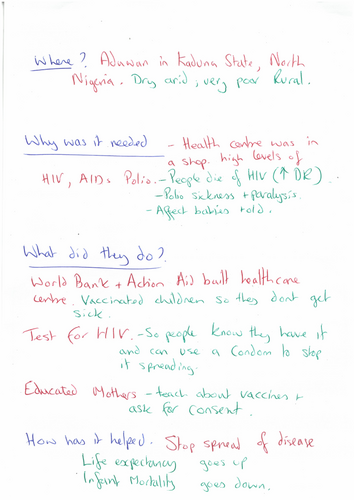 Where? Aduwan in Kaduna State, North
Nigeria. Dry arid, very poor Rural.
Why was it needed - Health centre was in
a shop. high levels of
HIV, AIDs Polio. - People die of HIV (↑ DR)
- Polio sickness + paralysis.
- Affect babies + old.
What did they do?
World Bank + Action Aid built healthcare
centre. Vaccinated children so they dont get
sick.
Test for HIV. - So people know they have it
and can use a condom to stop
it spreading.
Educated Mothers - teach about vaccines +
ask for consent.
How has it helped. Stop spread of disease
Life expectancy goes up
Infant Mortality goes down.